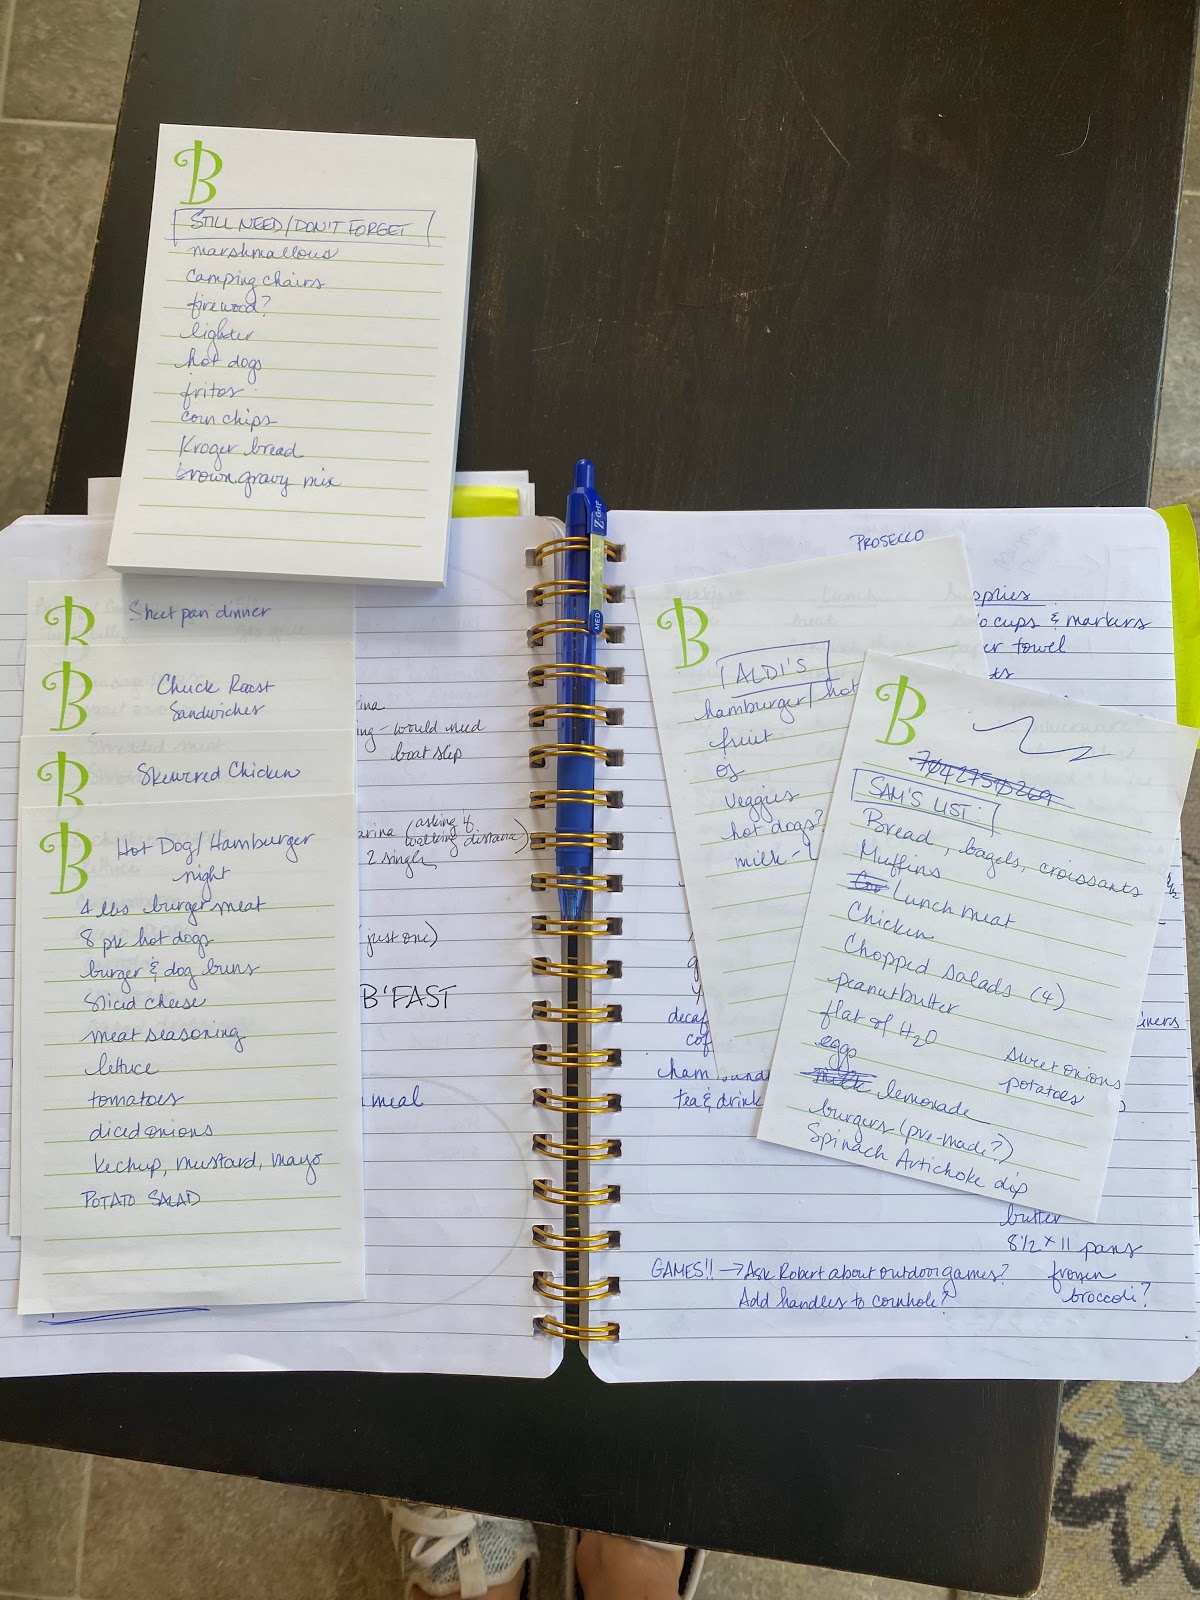 B
STILL NEED/DON'T FORGET
marshmallows
camping chairs
firewood?
lighter
hot dogs
fritos
corn chips
Kroger bread
brown gravy mix
B
Sheet pan dinner
B
Chuck Roast
Sandwiches
B
Skewered Chicken
B
Hot Dog/Hamburger
night
4 lbs burger meat
8 pk hot dogs
burger & dog buns
sliced cheese
meat seasoning
lettuce
tomatoes
diced onions
kechup, mustard, mayo
POTATO SALAD
would need
boat slip
(asking if
walking distance)
2 single
(just one)
B'FAST
meal
Z-Grip
MED
PROSECCO
cups & markers
towel
B
ALDI'S
hamburger/hot
fruit
OJ
veggies
hot dogs?
milk -
decaf
tea & drink
B
7042751526
SAM'S LIST:
Bread, bagels, croissants
Muffins
Lunch meat
Chicken
Chopped Salads (4)
peanutbutter
flat of H2O
eggs
sweet onions
potatoes
milk lemonade
burgers (pre-made?)
Spinach Artichoke dip
butter
8 1/2 x 11 pans
frozen
broccoli?
GAMES!! → Ask Robert about outdoor games?
Add handles to cornhole?